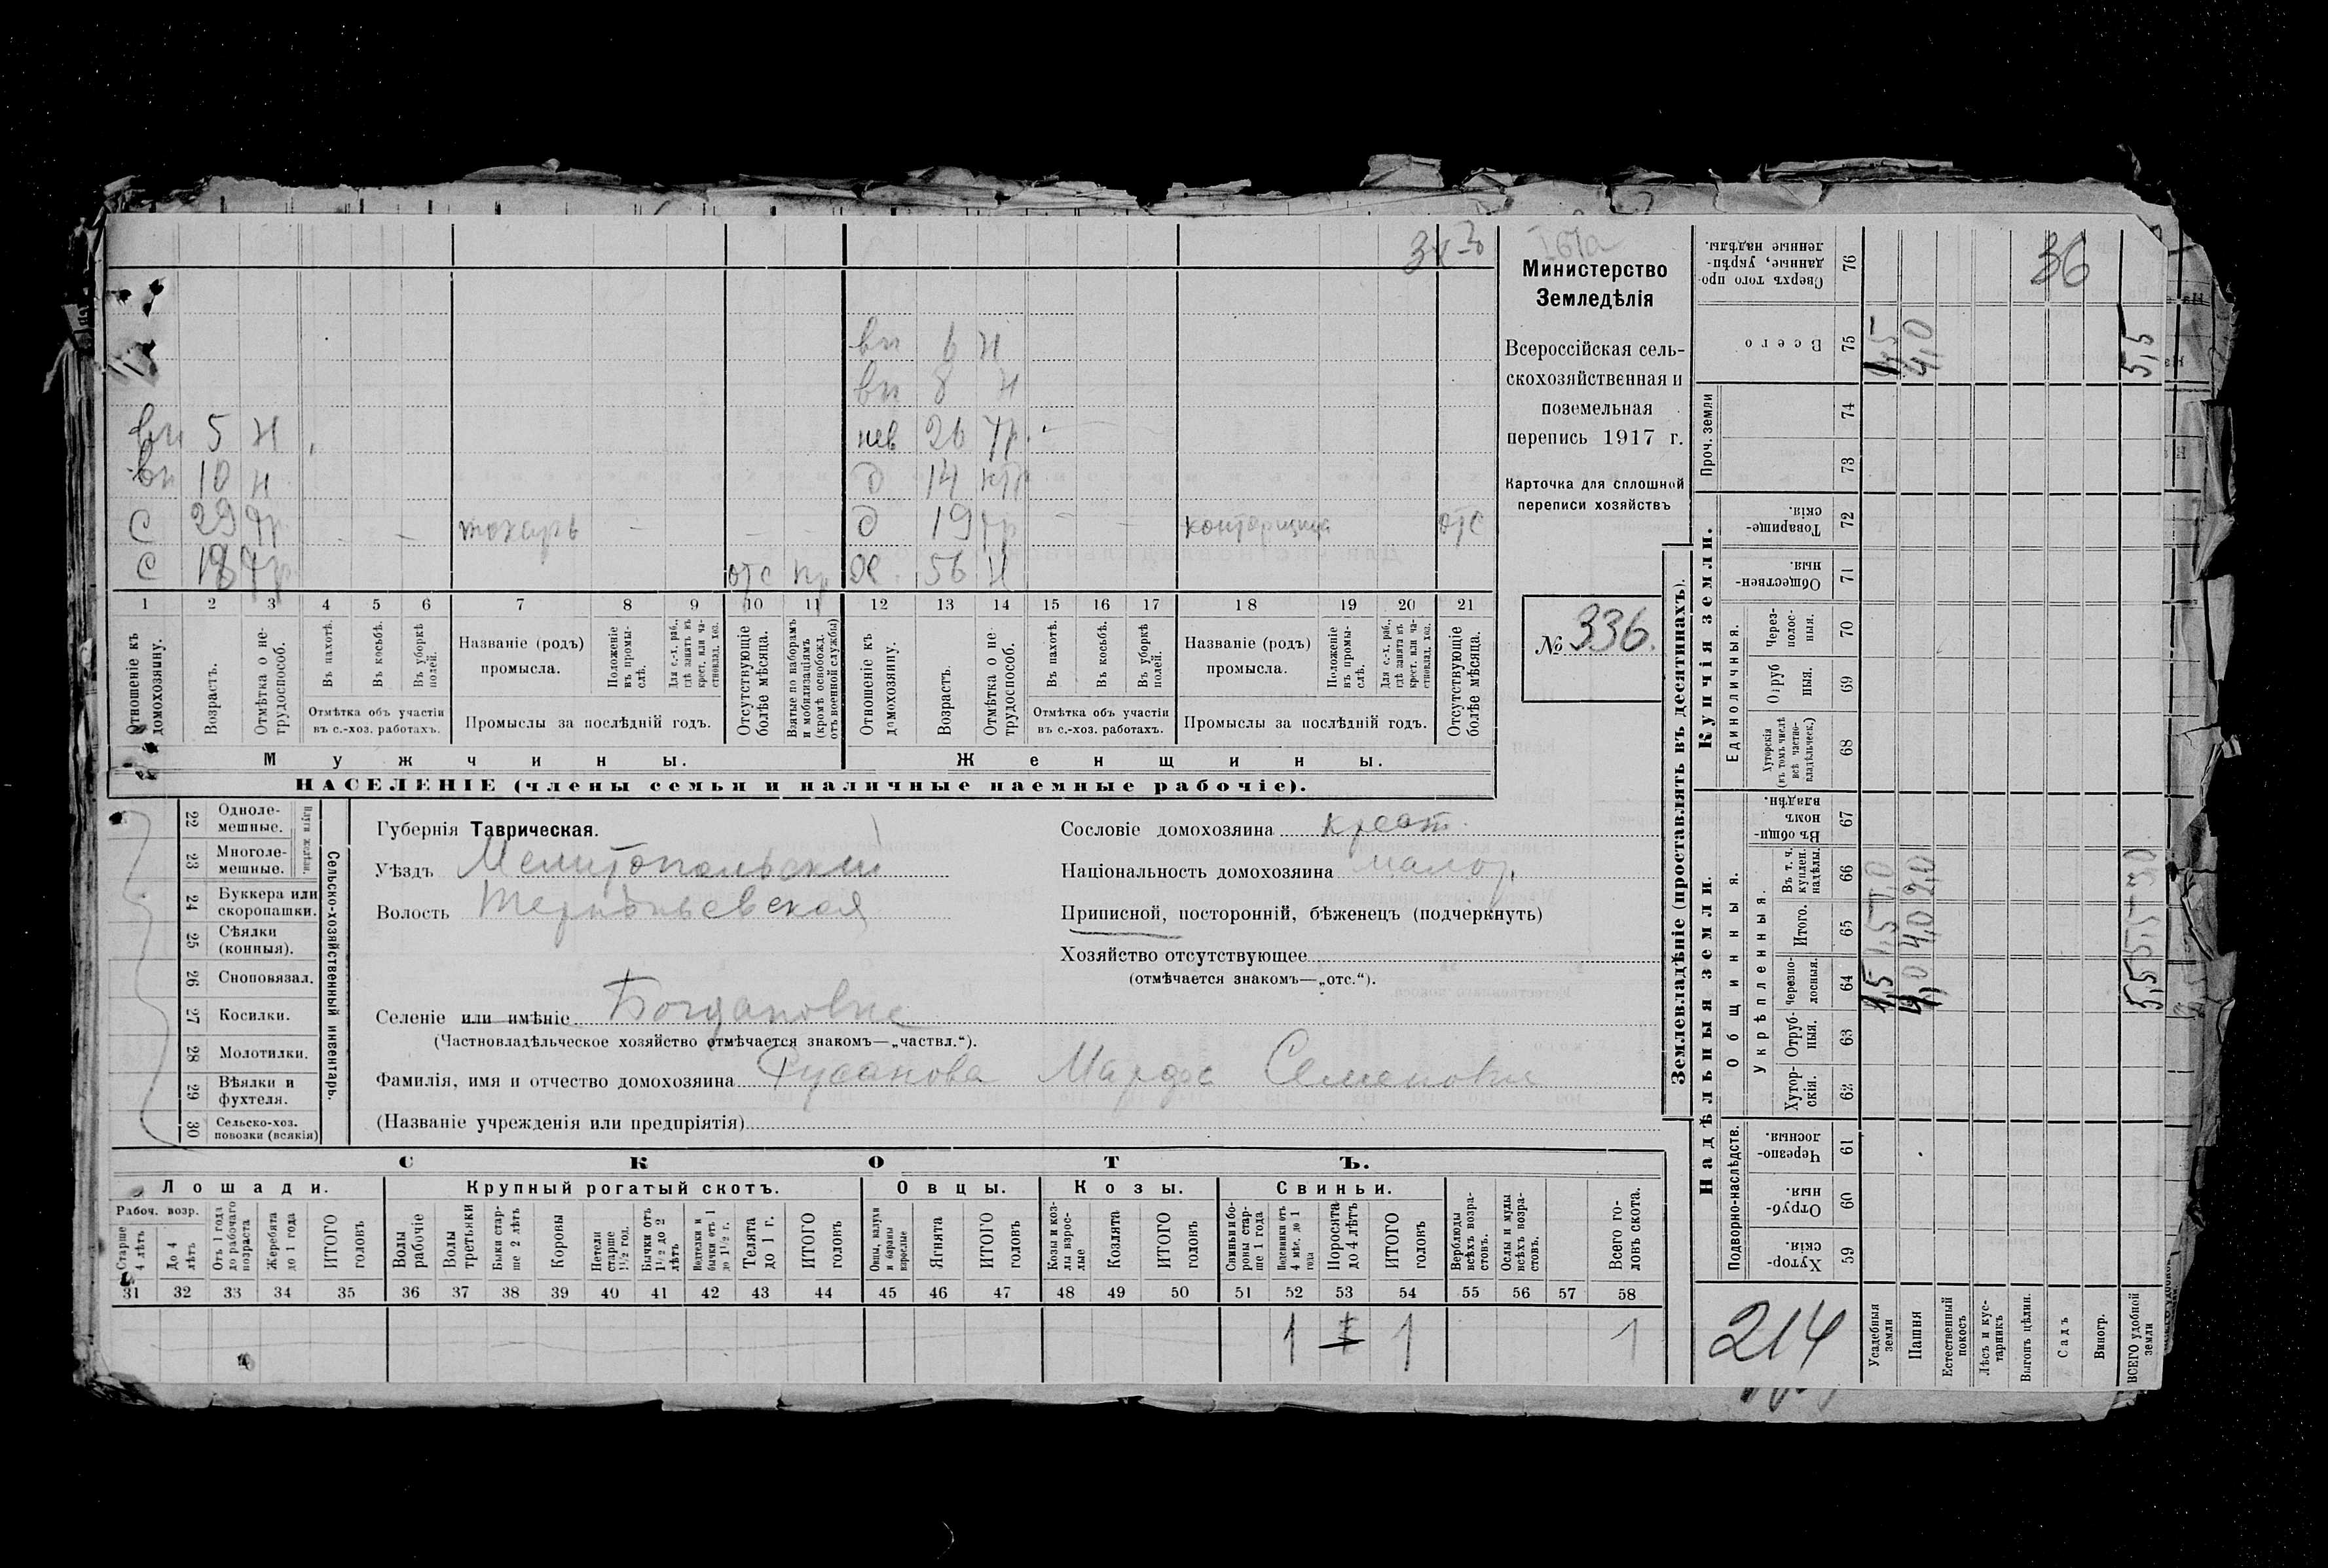 36
Министерство
Земледѣлія
Всероссійская сель-
скохозяйственная и
поземельная
перепись 1917 г.
Карточка для сплошной
переписи хозяйствъ
№ 336.
вн 6 н
вн 8 н
вн 5 н
нев 26 тр.
вн 10 н
д 14 птр
с 29 тр токарь
д 19 тр конторщица отс
с 18 тр отс пр
ж. 56 н
1 2 3 4 5 6 7 8 9 10 11 12 13 14 15 16 17 18 19 20 21
Отношеніе къ домохозяину.
Возрастъ.
Отмѣтка о не-трудоспособ.
Въ пахотѣ.
Въ косьбѣ.
Въ уборкѣ полей.
Отмѣтка объ участіи
въ с.-хоз. работахъ.
Названіе (родъ)
промысла.
Положеніе въ промы-слѣ.
Для с.-х. раб., гдѣ занятъ въ крест. или ча-стновлад. хоз.
Промыслы за послѣдній годъ.
Отсутствующіе болѣе мѣсяца.
Взятые по наборамъ и мобилизаціямъ (кромѣ освобожд. отъ военной службы)
Отношеніе къ домохозяину.
Возрастъ.
Отмѣтка о не-трудоспособ.
Въ пахотѣ.
Въ косьбѣ.
Въ уборкѣ полей.
Отмѣтка объ участіи
въ с.-хоз. работахъ.
Названіе (родъ)
промысла.
Положеніе въ промы-слѣ.
Для с.-х. раб., гдѣ занята въ крест. или ча-стновлад. хоз.
Промыслы за послѣдній годъ.
Отсутствующіе болѣе мѣсяца.
Мужчины.
Женщины.
НАСЕЛЕНІЕ (члены семьи и наличные наемные рабочіе).
Сельско-хозяйственный инвентарь.
22 Одноле-мешные.
23 Многоле-мешные.
24 Буккера или скоропашки.
25 Сѣялки (конныя).
26 Сноповязал.
27 Косилки.
28 Молотилки.
29 Вѣялки и фухтеля.
30 Сельско-хоз. повозки (всякія)
Губернія Таврическая.
Уѣздъ Мелитопольский
Волость Терпѣньевская
Селеніе или имѣніе Богдановка
(Частновладѣльческое хозяйство отмѣчается знакомъ—„частвл.“).
Фамилія, имя и отчество домохозяина Русанова Марфа Семеновна
(Названіе учрежденія или предпріятія)
Сословіе домохозяина крест.
Національность домохозяина малор.
Приписной, посторонній, бѣженецъ (подчеркнуть)
Хозяйство отсутствующее
(отмѣчается знакомъ—„отс.“).
СКОТЪ.
Лошади.
Крупный рогатый скотъ.
Овцы.
Козы.
Свиньи.
Рабоч. возр.
Старше 4 лѣтъ
До 4 лѣтъ
Отъ 1 года до рабочаго возраста
Жеребята до 1 года
ИТОГО головъ
Волы рабочіе
Волы третьяки
Быки стар-ше 2 лѣтъ
Коровы
Нетели старше 1½ год.
Бычки отъ 1½ до 2 лѣтъ
Подтелки и бычки отъ 1 до 1½ г.
Телята до 1 г.
ИТОГО головъ
Овцы, валухи и бараны взрослые
Ягнята
ИТОГО головъ
Козы и коз-лы взрос-лые
Козлята
ИТОГО головъ
Свиньи и бо-ровы стар-ше 1 года
Подсвинки отъ 4 мѣс. до 1 года
Поросята до 4 лѣтъ
ИТОГО головъ
Верблюды всѣхъ возра-стовъ.
Ослы и мулы всѣхъ возра-стовъ.
Всего го-ловъ скота.
31 32 33 34 35 36 37 38 39 40 41 42 43 44 45 46 47 48 49 50 51 52 53 54 55 56 57 58
1 1 1 1
Землевладѣніе (проставлять въ десятинахъ).
Надѣльныя земли.
Купчія земли.
Проч. земли
Подворно-наслѣдств.
Общинныя.
Укрѣпленныя.
Единоличныя.
59 Хутор-скія.
60 Отруб-ныя.
61 Черезпо-лосныя.
62 Хутор-скія.
63 Отруб-ныя.
64 Черезпо-лосныя.
65 Итого.
66 Въ т. ч. куплен. надѣлы.
67 Въ общи-номъ владѣн.
68 Хуторскія (въ томъ числѣ всѣ частно-владѣльческ.)
69 Отруб ныя.
70 Через-полос-ныя.
71 Обществен-ныя.
72 Товарище-скія.
73
74
75 Всего
76 Сверхъ того про-данные, укрѣп-ленные надѣлы.
Усадебныя земли 1,5 1,5 1,0 1,5
Пашня 4,0 4,0 2,0 4,0
Естественный покосъ
Лѣсъ и кус-тарникъ
Выгонъ цѣлин.
Садъ
Виногр.
ВСЕГО удобной земли 5,5 5,5 3,0 5,5
214